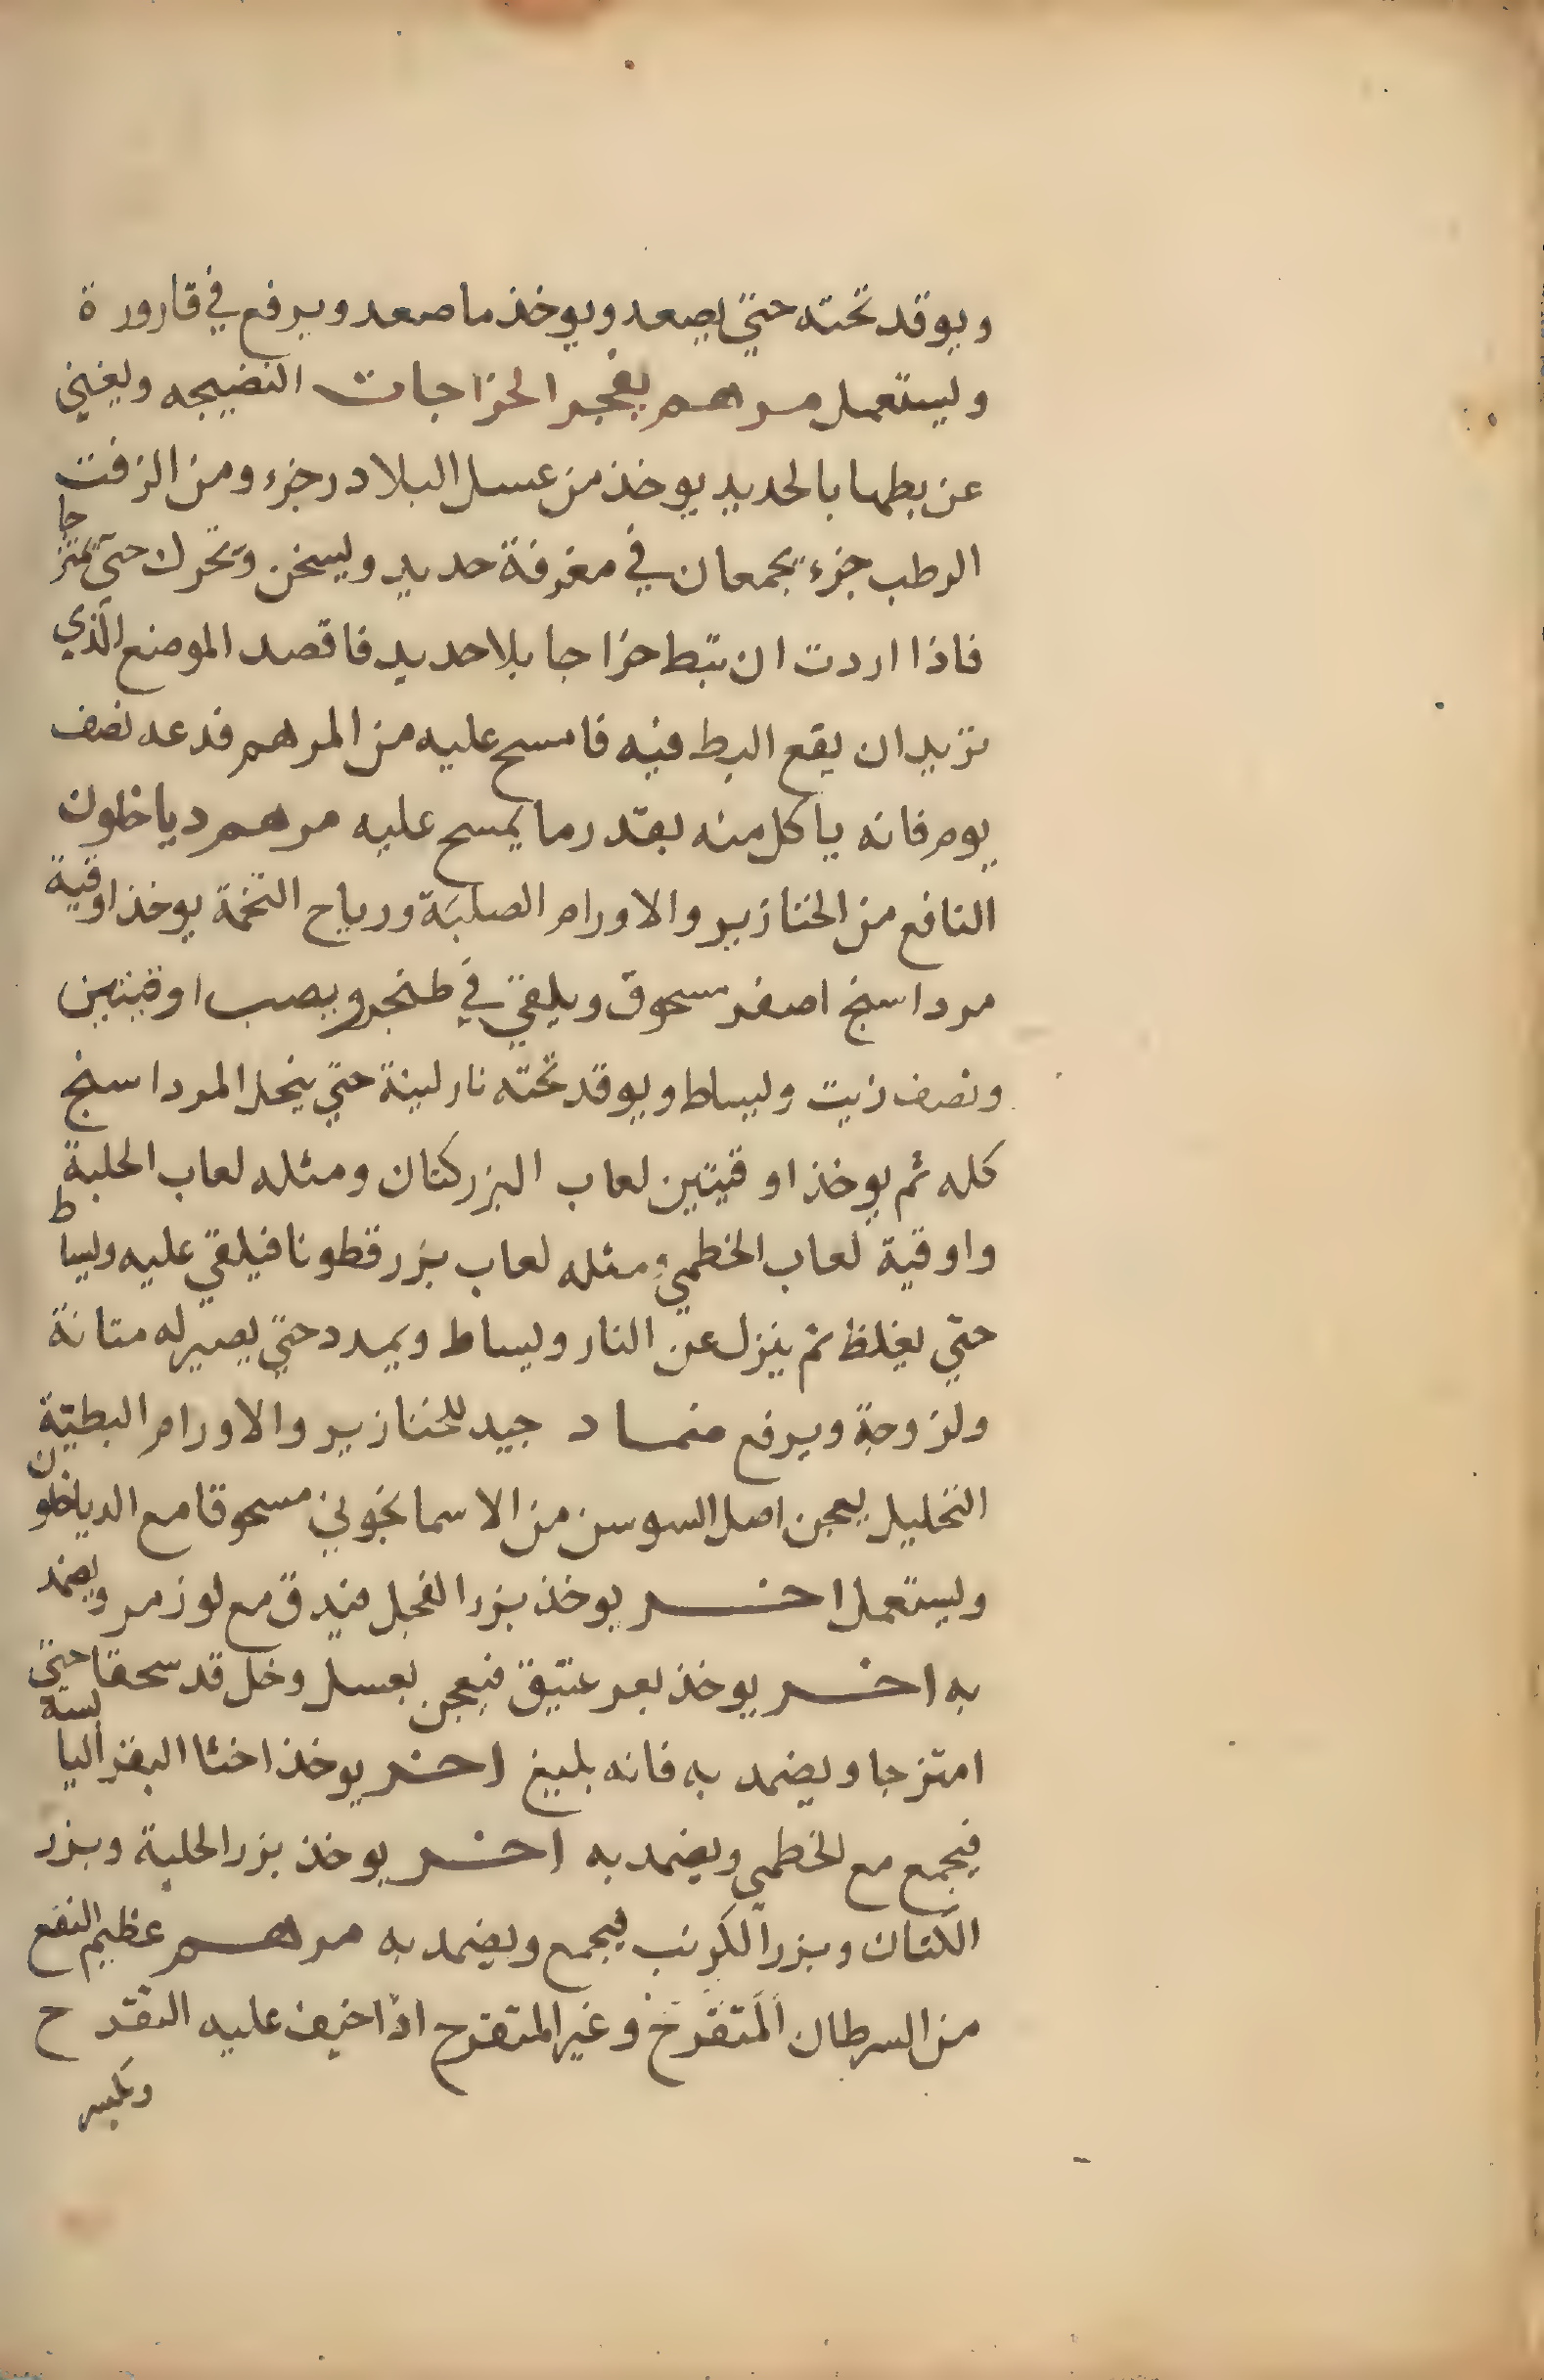 ويوقد تحته حتي يصعد ويوخذ ما صعد ويرفع في قارورة
ويستعمل مرهم يفجر الخراجات النضيجه ويغني
عن بطها بالحديد يوخذ من عسل البلادر جزء ومن الزفت
الرطب جزء يجمعان في مغرفة حديد ويسخن وتحرك حتي يمتزجا
فاذا اردت ان تبط خراجا بلا حديد فاقصد الموضع الذي
تريد ان يقع البط فيه فامسح عليه من المرهم فدعه نصف
يوم فانه ياكل منه بقدر ما يمسح عليه مرهم دياخلون
النافع من الخنازير والاورام الصلبة ورياح التخمة يوخذ اوقية
مرداسنج اصفر مسحوق ويلقي في طنجر ويصب اوقيتين
ونصف زيت ويساط ويوقد تحته نار لينة حتي ينحل المرداسنج
كله ثم يوخذ اوقيتين لعاب البزركتان ومثله لعاب الحلبة
واوقية لعاب الخطمي ومثله لعاب بزرقطونا فيلقي عليه ويساط
حتي يغلظ ثم ينزل عن النار ويساط ويمدد حتي يصير له متانة
ولزوجة ويرفع ضماد جيد للخنازير والاورام البطيّة
التحليل يعجن اصل السوسن من الاسمانجوني مسحوقا مع الدياخلون
ويستعمل اخر يوخذ بزر الفجل فيدق مع لوز مر ويضمد
به اخر يوخذ بعر عتيق فيعجن بعسل وخل قد سحقا حتي
امتزجا ويضمد به فانه بليغ اخر يوخذ اخثا البقر اليابسة
فيجمع مع الخطمي ويضمد به اخر يوخذ بزر الحلبة وبزر
الكتان وبزر الكرنب فيجمع ويضمد به مرهم عظيم النفع
من السرطان المتقرح وغير المتقرح اذا خيف عليه التقرح